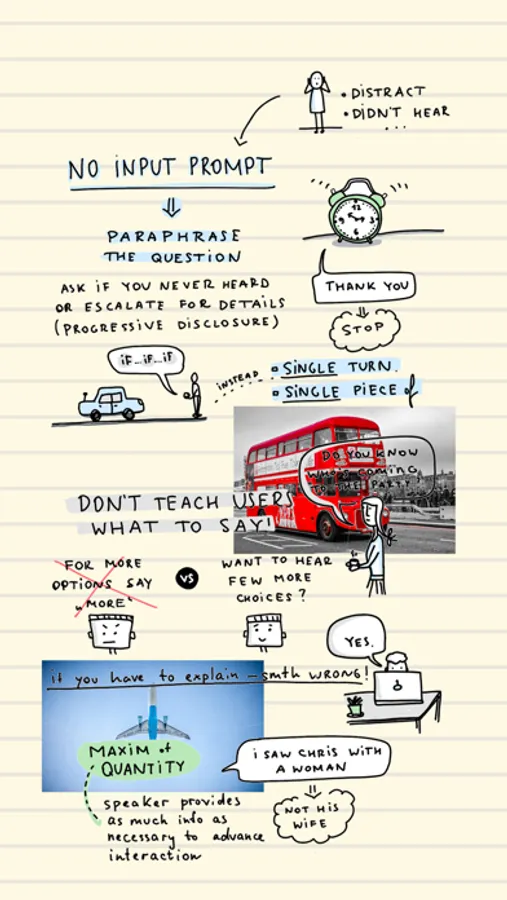 • DISTRACT
• DIDN'T HEAR
...
NO INPUT PROMPT
PARAPHRASE
THE QUESTION
ASK IF YOU NEVER HEARD
OR ESCALATE FOR DETAILS
(PROGRESSIVE DISCLOSURE)
12
3
6
9
THANK YOU
STOP
IF...IF...IF
INSTEAD
SINGLE TURN.
SINGLE PIECE of
DO YOU KNOW
WHO'S COMING
TO THE PARTY?
DON'T TEACH USERS
WHAT TO SAY!
FOR MORE
OPTIONS SAY
„MORE"
VS
WANT TO HEAR
FEW MORE
CHOICES?
YES.
if you have to explain – smth WRONG!
MAXIM of
QUANTITY
I SAW CHRIS WITH
A WOMAN
NOT HIS
WIFE
speaker provides
as much info as
necessary to advance
interaction